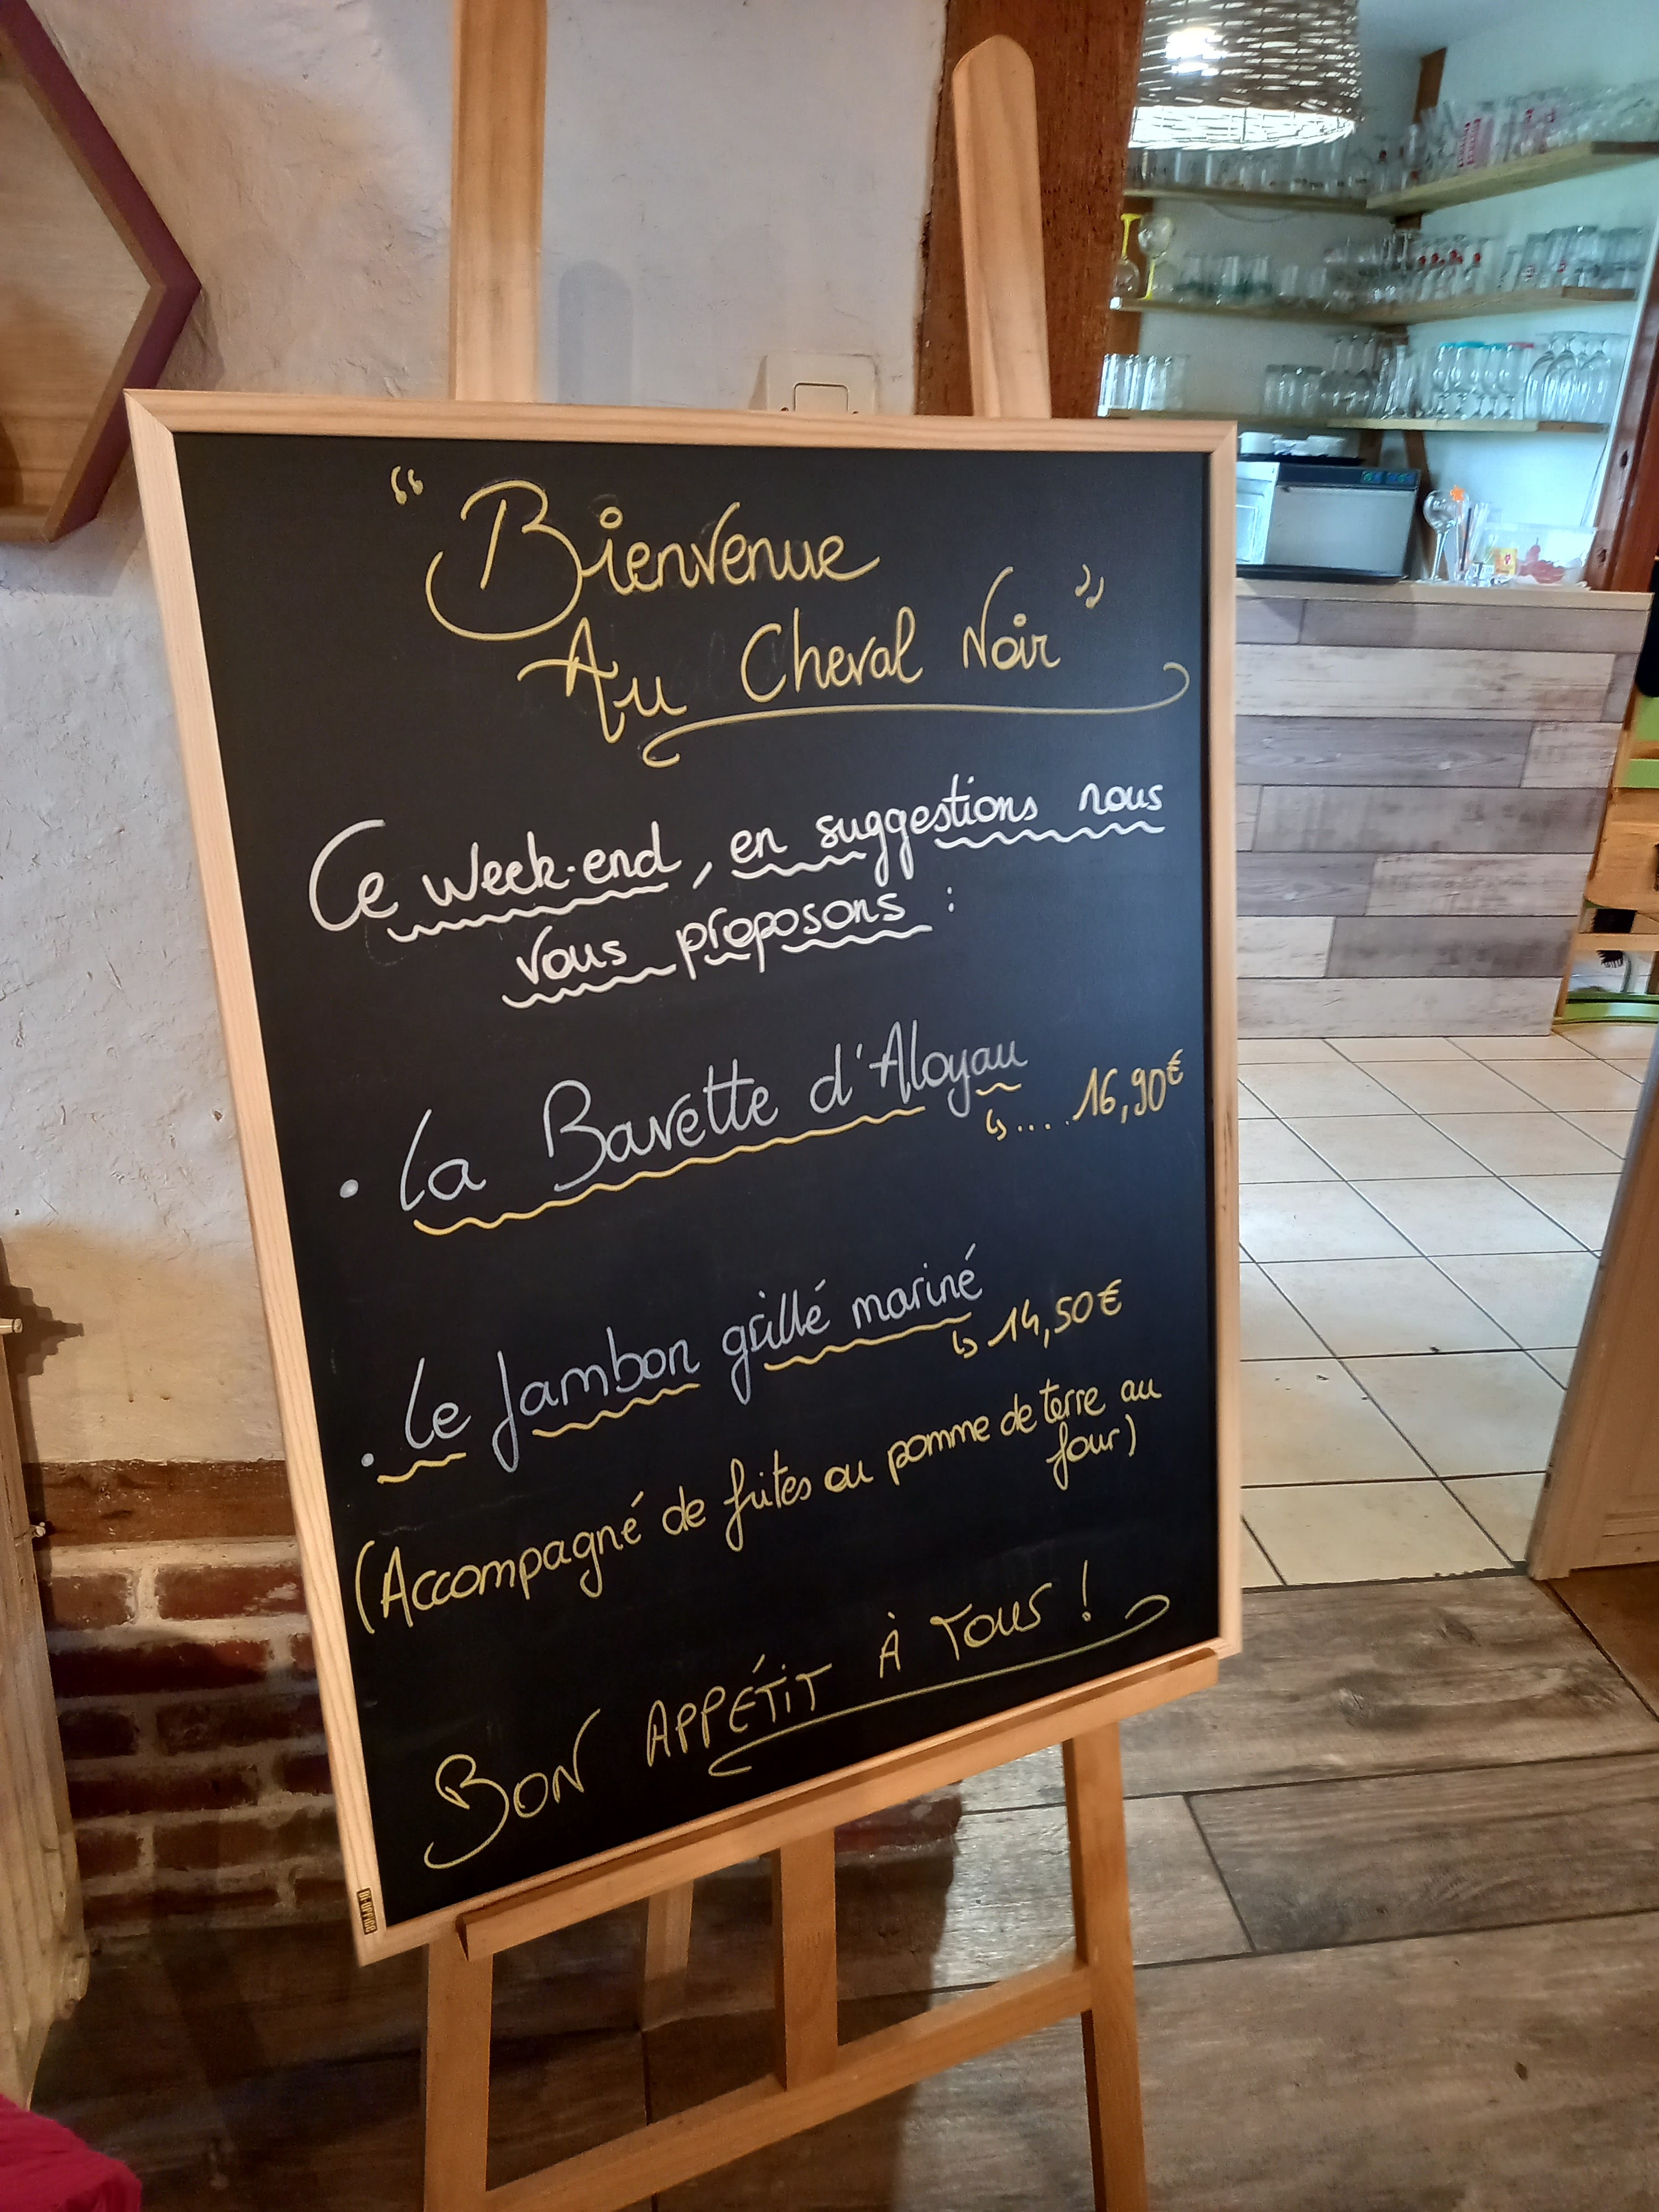 “Bienvenue
Au Cheval Noir”
Ce week-end, en suggestions nous
vous proposons :
• La Bavette d'Aloyau
↳.... 16,90€
• Le Jambon grillé mariné
↳ 14,50€
(Accompagné de frites ou pomme de terre au
four)
BON APPÉTiT À TOUS !